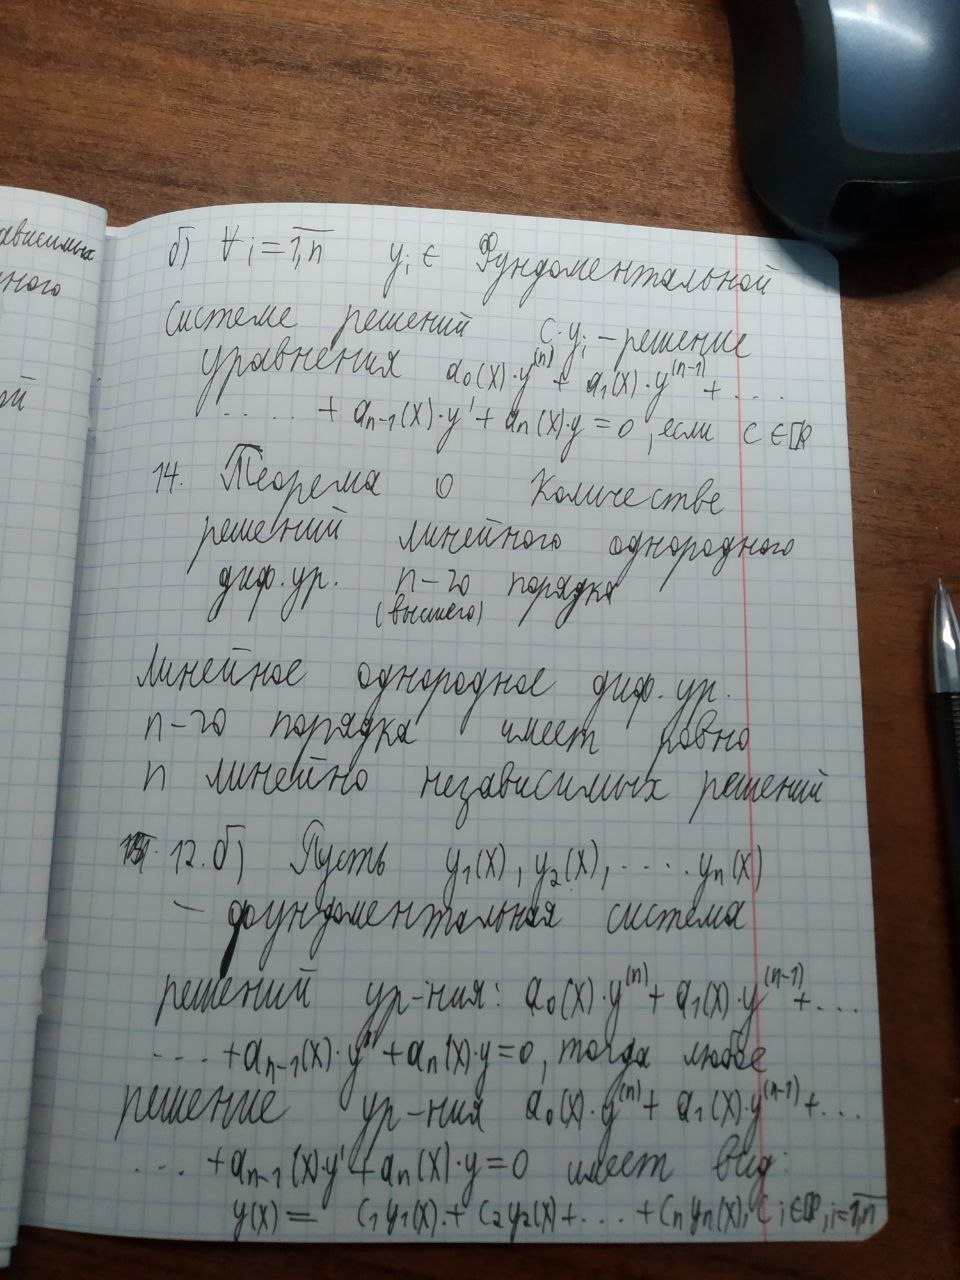 ависимых
ного
ой
б) ∀ i = 1,n yᵢ ∈ Фундоментальной
системе решений c·yᵢ – решение
уравнения a₀(x)·y⁽ⁿ⁾ + a₁(x)·y⁽ⁿ⁻¹⁾ + ....
..... + aₙ₋₁(x)·y' + aₙ(x)·y = 0, если c ∈ ℝ
14. Теорема о количестве
решений линейного однородного
диф. ур. n-го порядка
(высшего)
Линейное однородное диф. ур.
n-го порядка имеет ровно
n линейно независимых решений
12.б) Пусть y₁(x), y₂(x), ..... yₙ(x)
– фундоментальная система
решений ур-ния: a₀(x)·y⁽ⁿ⁾ + a₁(x)·y⁽ⁿ⁻¹⁾ + ...
.... + aₙ₋₁(x)·y' + aₙ(x)·y = 0, тогда любое
решение ур-ния a₀(x)·y⁽ⁿ⁾ + a₁(x)·y⁽ⁿ⁻¹⁾ + ...
.... + aₙ₋₁(x)·y' + aₙ(x)·y = 0 имеет вид:
y(x) = C₁y₁(x) + C₂y₂(x) + ... + Cₙyₙ(x), Cᵢ ∈ ℝ, i = 1,n